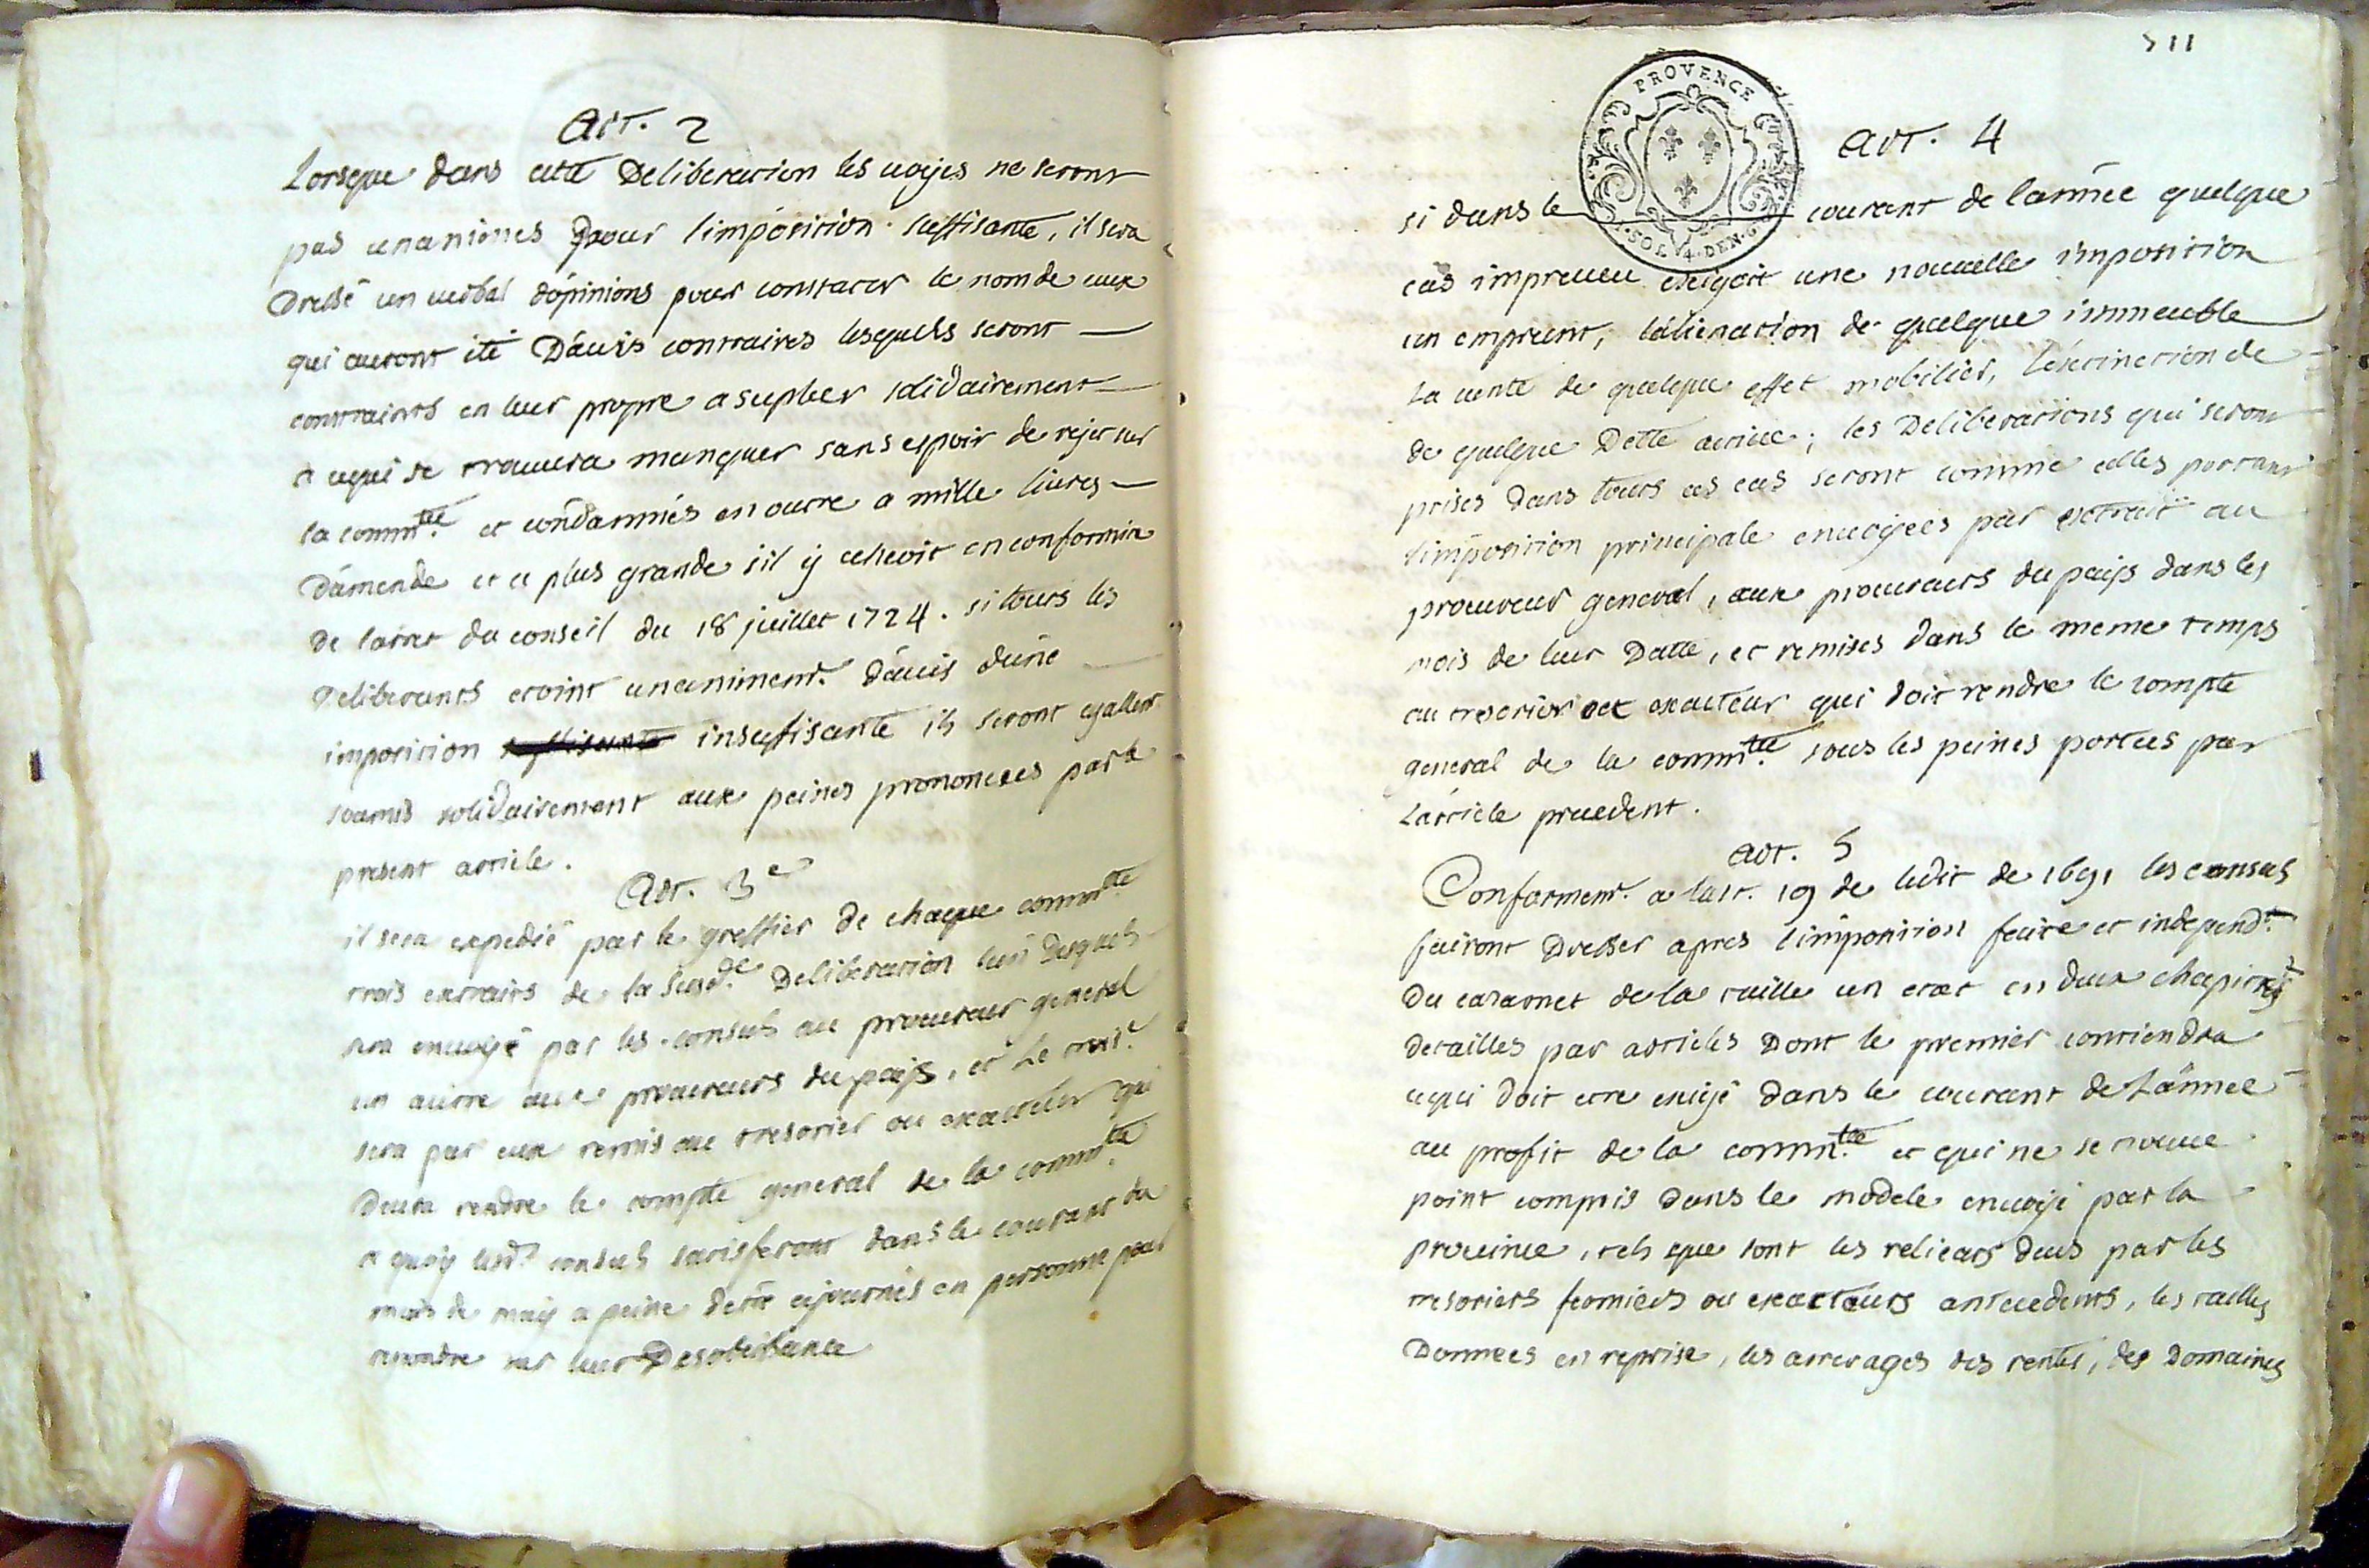 Art. 2
Lorsque dans cette Deliberation les voyes ne seront
pas unanimes pour l'imposition suffisante, il sera
Dressé un verbal d'opinions pour constater le nom de ceux
qui auront eté D'avis contraires lesquels seront
contraints en leur propre a supleer solidairement
a cequi se trouvera manquer sans espoir de rejet sur
la comm.té et condamnés en outre a mille livres
D'amende et a plus grande s'il y echeoit en conformité
De l'arret du conseil du 18 juillet 1724. si touts les
Deliberants etoint unanimem.t d'avis d'une
imposition insuffisante ils seront egallem.t
soumis solidairement aux peines prononcées par le
present article.
Art. 3e
il sera expedié par le greffier de chaque comm.té
trois extraits de la susd.e Deliberation l'un desquels
sera envoyé par les consuls au procureur general
un autre aux procureurs du pays, et Le trois.e
sera par eux remis au tresorier ou exacteur qui
Devra rendre le compte general de la comm.té
a quoy lesd.s consuls satisferont dans le courant du
mois de may a peine detre ajournés en personne pour
repondre sur leur Desobeissance
511
PROVENCE
1.SOL 4.DEN.
Art. 4
si dans le courant de l'année quelque
cas impreveu exigoit une nouvelle imposition
un emprunt, l'alienation de quelque immeuble
La vente de quelque effet mobilier, l'extinction de
de quelque Dette active; les Deliberations qui seront
prises dans touts ces cas seront comme celles portant
l'imposition principale envoyées par extrait au
procureur general, aux procureurs du pays dans les
mois de leur Datte, et remises dans le meme temps
au tresorier et exacteur qui doit rendre le compte
general de la comm.té sous les peines portées par
L'article precedent.
Art. 5
Conformem.t a l'art. 19 de l'edit de 1691 les consuls
fairont Dresser apres l'imposition faite et independ.t
Du cazarnet de la taille un etat en deux chapitres
detailles par articles Dont le premier contiendra
cequi doit etre exigé dans le courant de L'année
au profit de la comm.té et qui ne se trouve
point compris dans le modele envoyé par la
province, tels que sont les relicats deus par les
tresoriers fermiers ou exacteurs antecedents, les tailles
Donnees en reprise, les arrerages des rentes, des Domaines